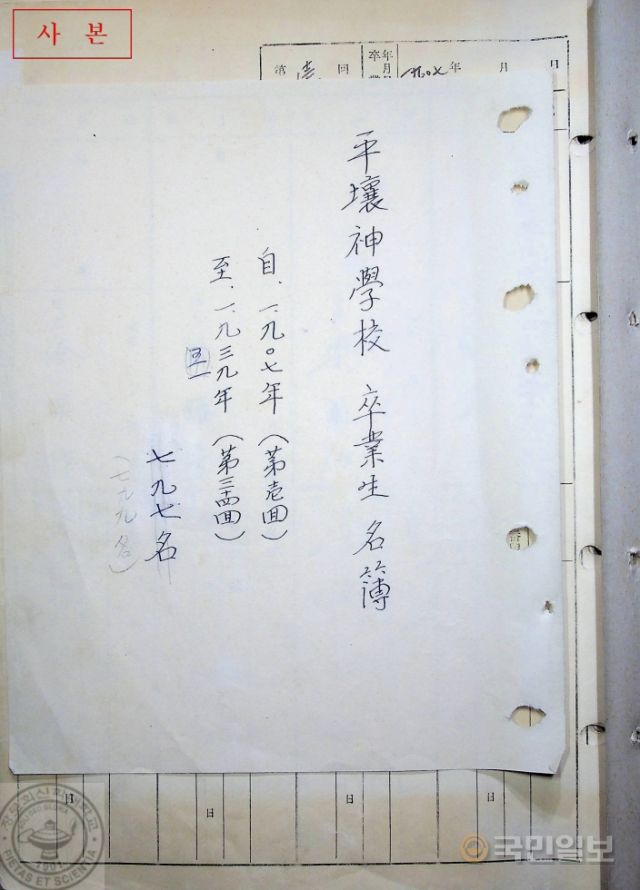 사본
第 壱 回 卒 年 月 一九〇七 年 月 日
平壤神學校 卒業生 名簿
自、一九〇七年 (第壱回)
至、一九三九年 (第三四回)
七九七名
(七九九名)
日 日 日 日
1901
PIETAS ET SCIENTIA
국민일보